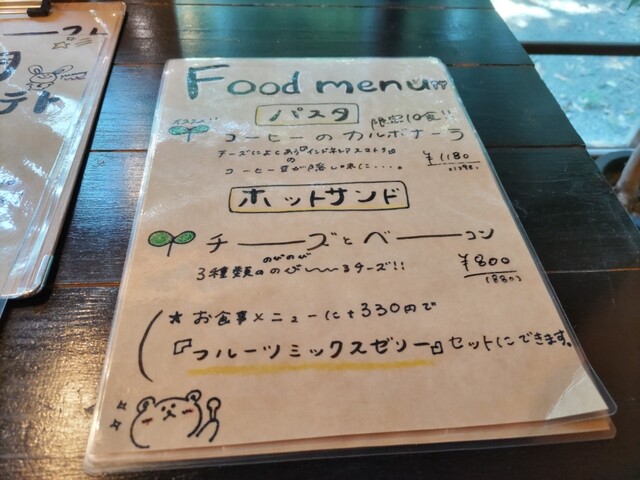 Food menu
パスタ
オススメ!! 限定10食!!
コーヒーのカルボナーラ
チーズによくあう『インドネシアスマトラ』の
コーヒー豆が隠し味に・・・。
¥1180
ホットサンド
チーズとベーコン
のびのび
3種類ののび〜〜るチーズ!!
¥800
(880)
★お食事メニューに+330円で
『フルーツミックスゼリー』セットにできます。